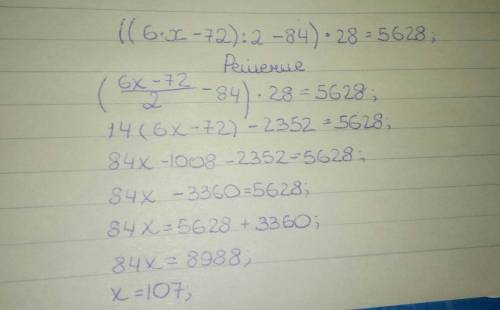 ((6·x-72):2-84)·28=5628;
Решение
(6x-72/2-84)·28=5628;
14(6x-72)-2352=5628;
84x-1008-2352=5628;
84x-3360=5628;
84x=5628+3360;
84x=8988;
x=107;